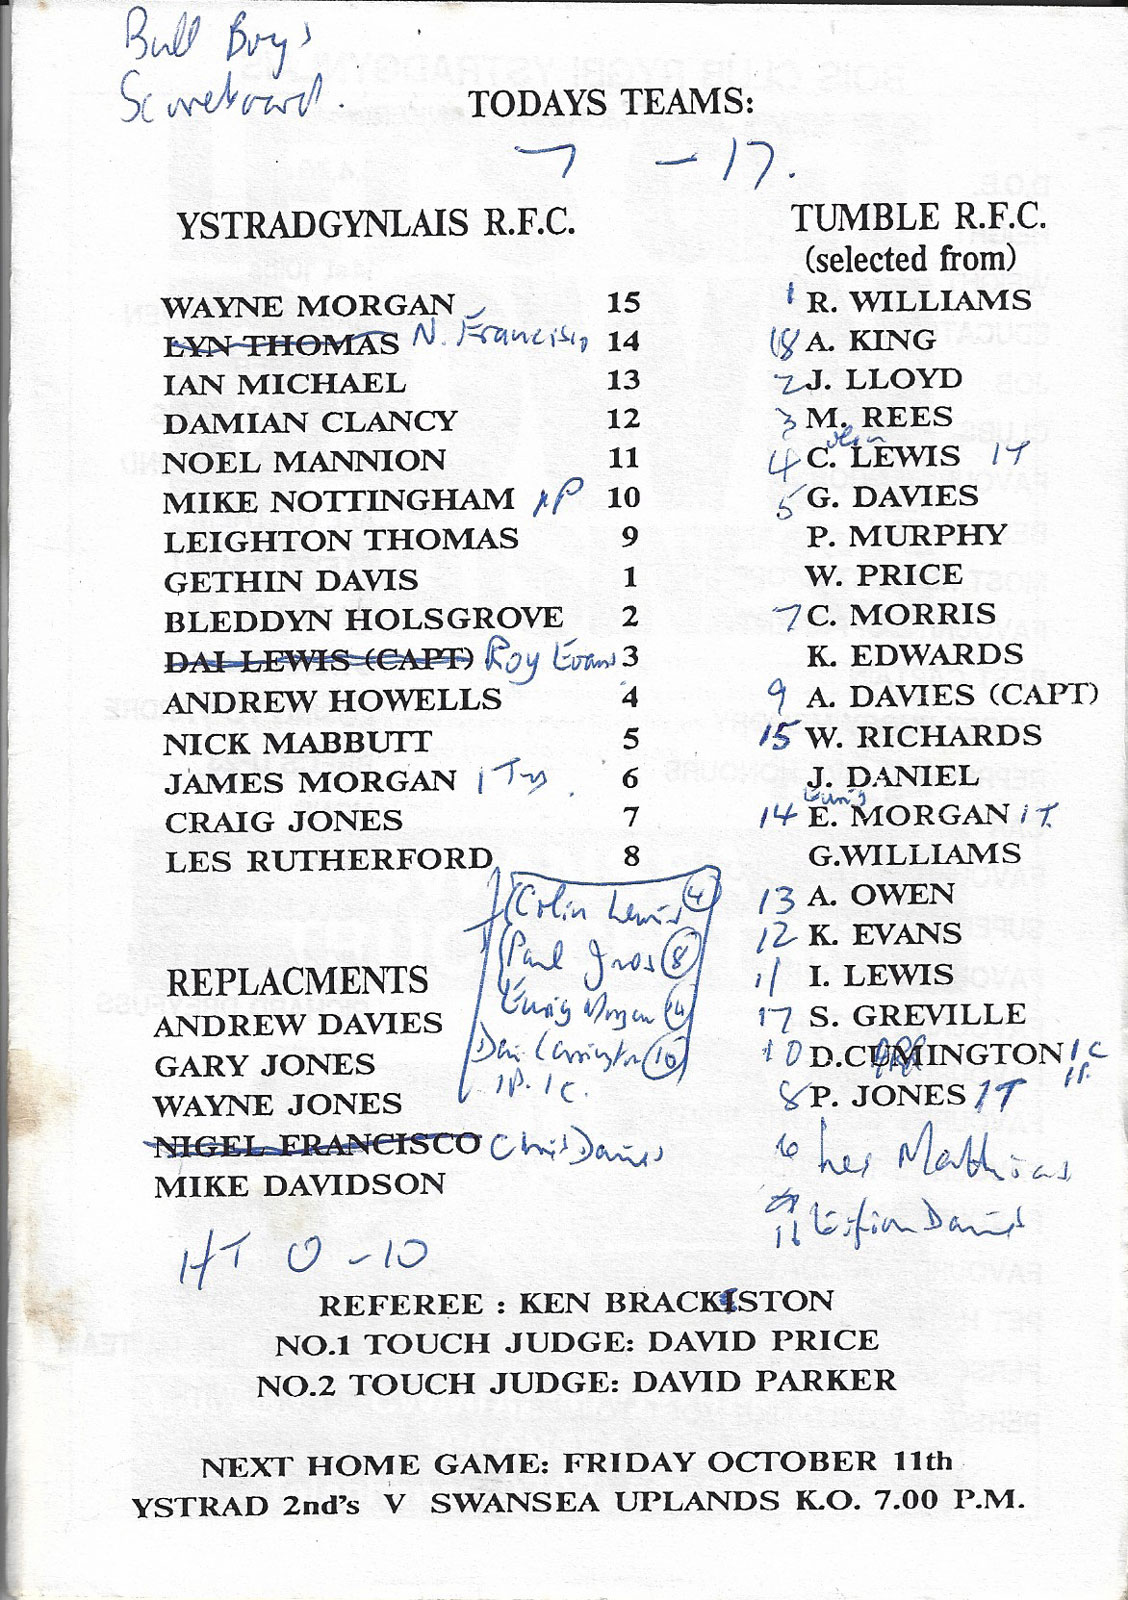 Ball Boys
Scoreboard.
TODAYS TEAMS:
7 - 17.
YSTRADGYNLAIS R.F.C.
WAYNE MORGAN 15
LYN THOMAS N. Francisco 14
IAN MICHAEL 13
DAMIAN CLANCY 12
NOEL MANNION 11
MIKE NOTTINGHAM 1P 10
LEIGHTON THOMAS 9
GETHIN DAVIS 1
BLEDDYN HOLSGROVE 2
DAI LEWIS (CAPT) Roy Evans 3
ANDREW HOWELLS 4
NICK MABBUTT 5
JAMES MORGAN 1T 6
CRAIG JONES 7
LES RUTHERFORD 8
Colin Lewis 4
Paul Jnos 8
Eurig Morgan 14
Dai Carrington 10
1P. 1C.
REPLACMENTS
ANDREW DAVIES
GARY JONES
WAYNE JONES
NIGEL FRANCISCO Chris Davies
MIKE DAVIDSON
HT 0 - 10
TUMBLE R.F.C.
(selected from)
1 R. WILLIAMS
18 A. KING
2 J. LLOYD
3 M. REES
olin
4 C. LEWIS 1T
5 G. DAVIES
P. MURPHY
W. PRICE
7 C. MORRIS
K. EDWARDS
9 A. DAVIES (CAPT)
15 W. RICHARDS
J. DANIEL
Eurig
14 E. MORGAN 1T.
G.WILLIAMS
13 A. OWEN
12 K. EVANS
11 I. LEWIS
17 S. GREVILLE
10 D.CUMINGTON 1C
1P.
8 P. JONES 1T
6 Les Mathias
16 Eifion Davies
REFEREE : KEN BRACKISTON
NO.1 TOUCH JUDGE: DAVID PRICE
NO.2 TOUCH JUDGE: DAVID PARKER
NEXT HOME GAME: FRIDAY OCTOBER 11th
YSTRAD 2nd's V SWANSEA UPLANDS K.O. 7.00 P.M.